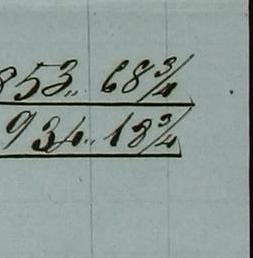 853,, 68 3/4
934,, 18 3/4